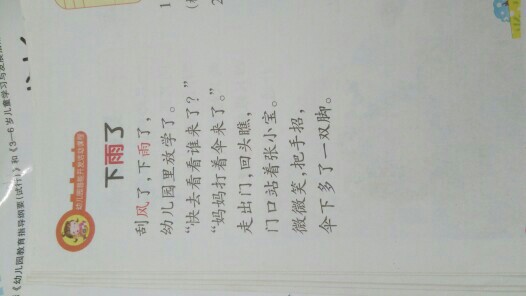 《幼儿园教育指导纲要(试行)》和《3—6岁儿童学习与发展指
下雨了
刮风了,下雨了,
幼儿园里放学了。
“快去看看谁来了?”
“妈妈打着伞来了。”
走出门,回头瞧,
门口站着张小宝。
微微笑,把手招,
伞下多了一双脚。
1
2